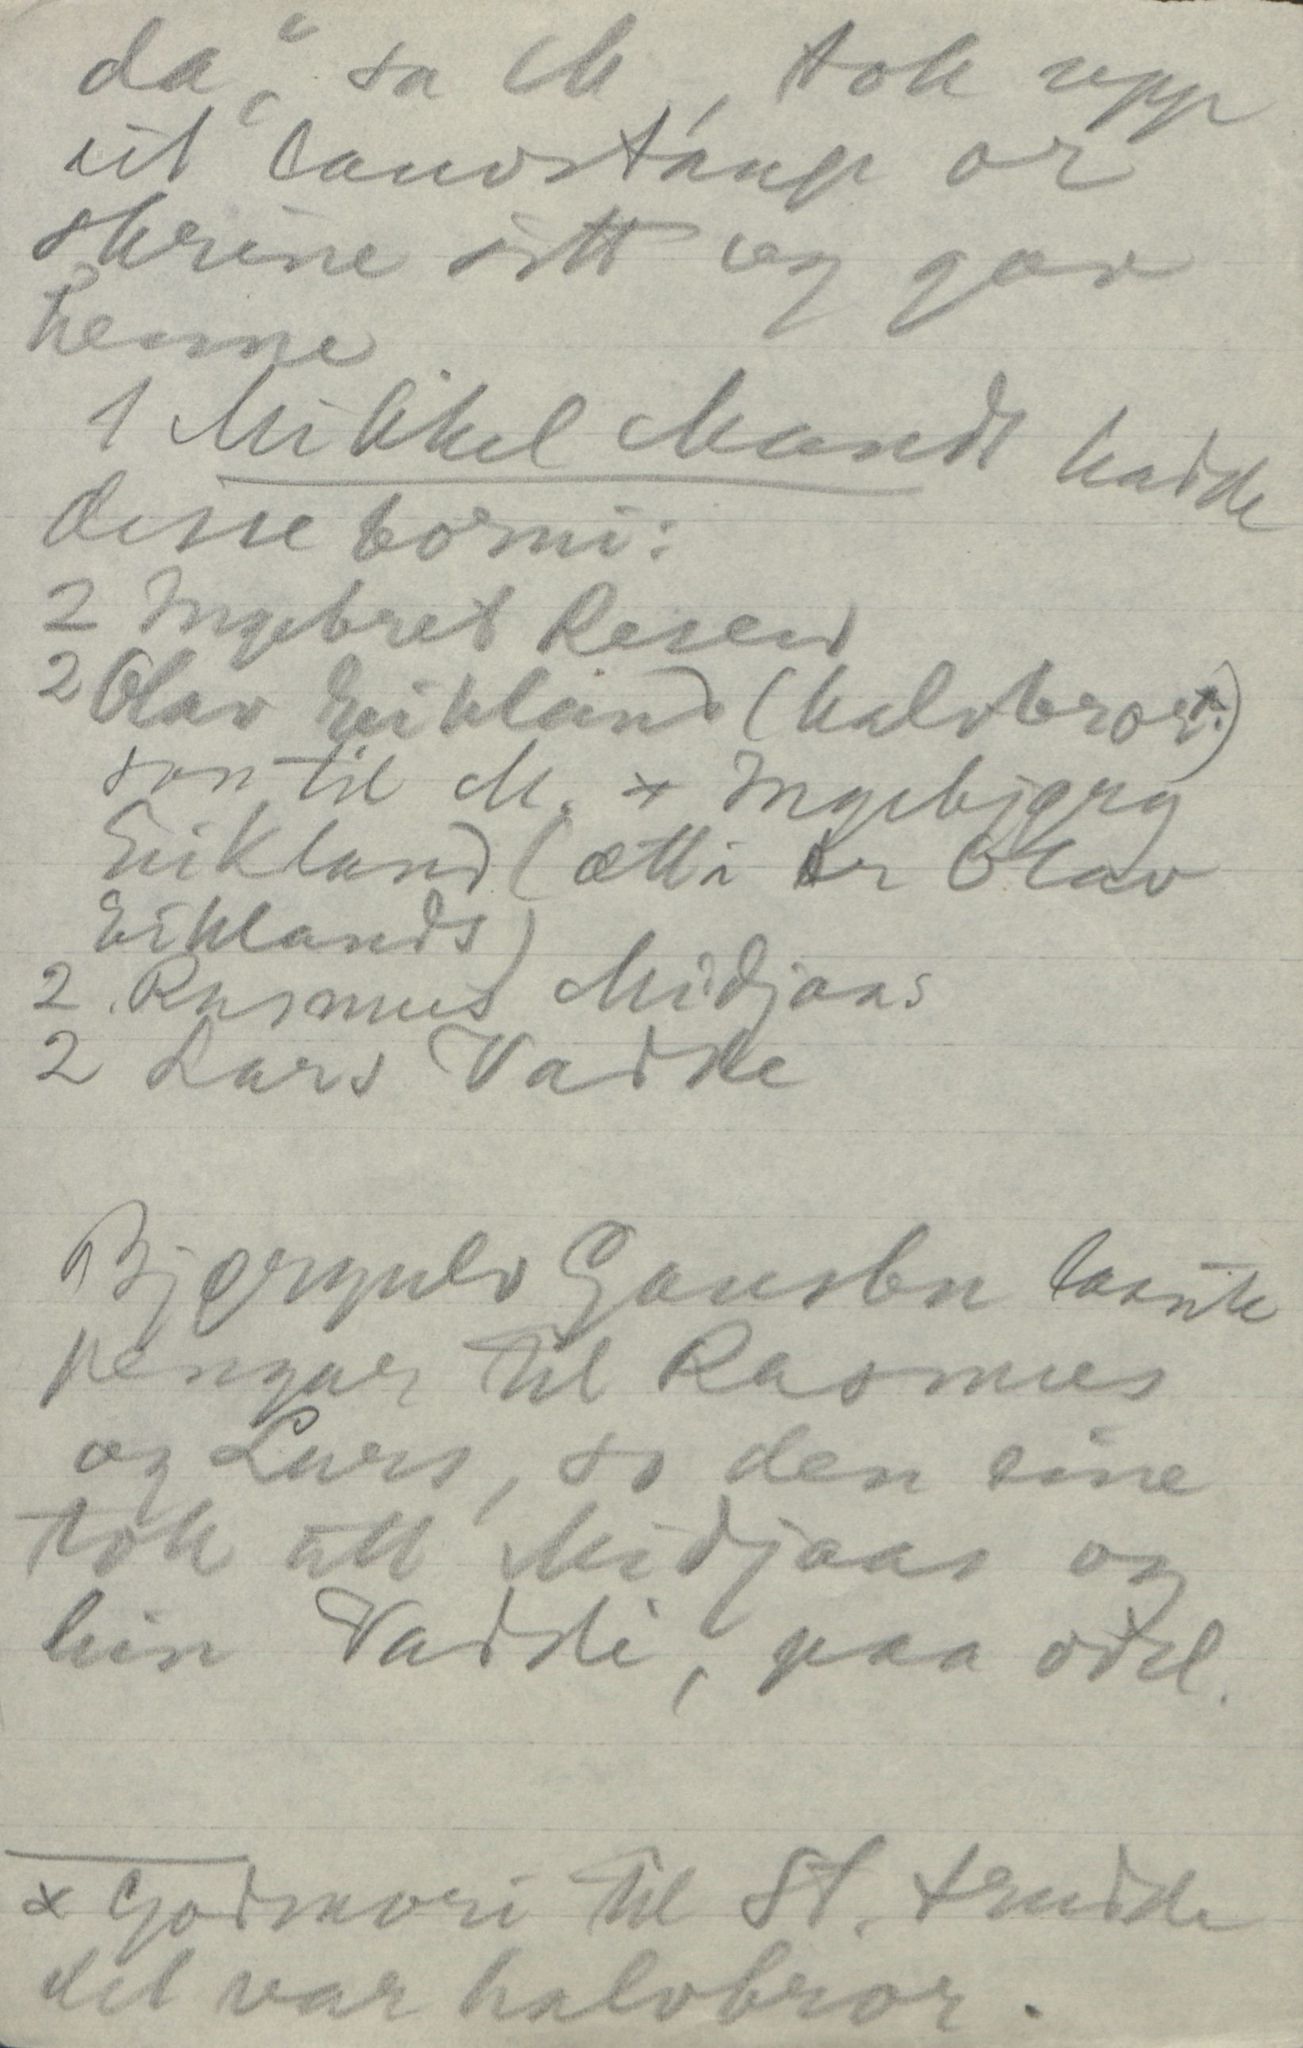 da," sa M, tok upp
eit lauvstaup or
skrine sitt og gav
henne
1 Mikkel Mandt hadde
desse borni:
2 Ingebret Resend
2 Olav Eikland (halvbror x)
son til M. + Ingebjørg
Eikland (ætti er Olav
Eiklands)
2. Rasmus Midjaas
2 Lars Vadde
Bjørgulv Gausbu laante
pengar til Rasmus
og Lars, so den eine
tok att Midjaas og
hin Vaddi, paa odel.
x Godmori til St. trudde
det var halvbror.